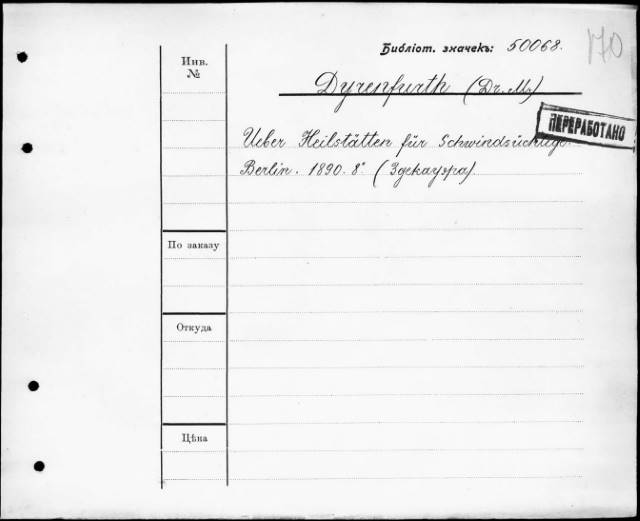 Библіот. значекъ: 50068.
170
Инв.
№
Dyrenfurth (Dr. M.)
ПЕРЕРАБОТАНО
Ueber Heilstätten für Schwindsüchtige.
Berlin. 1890. 8° (Здекауэра).
По заказу
Откуда
Цѣна